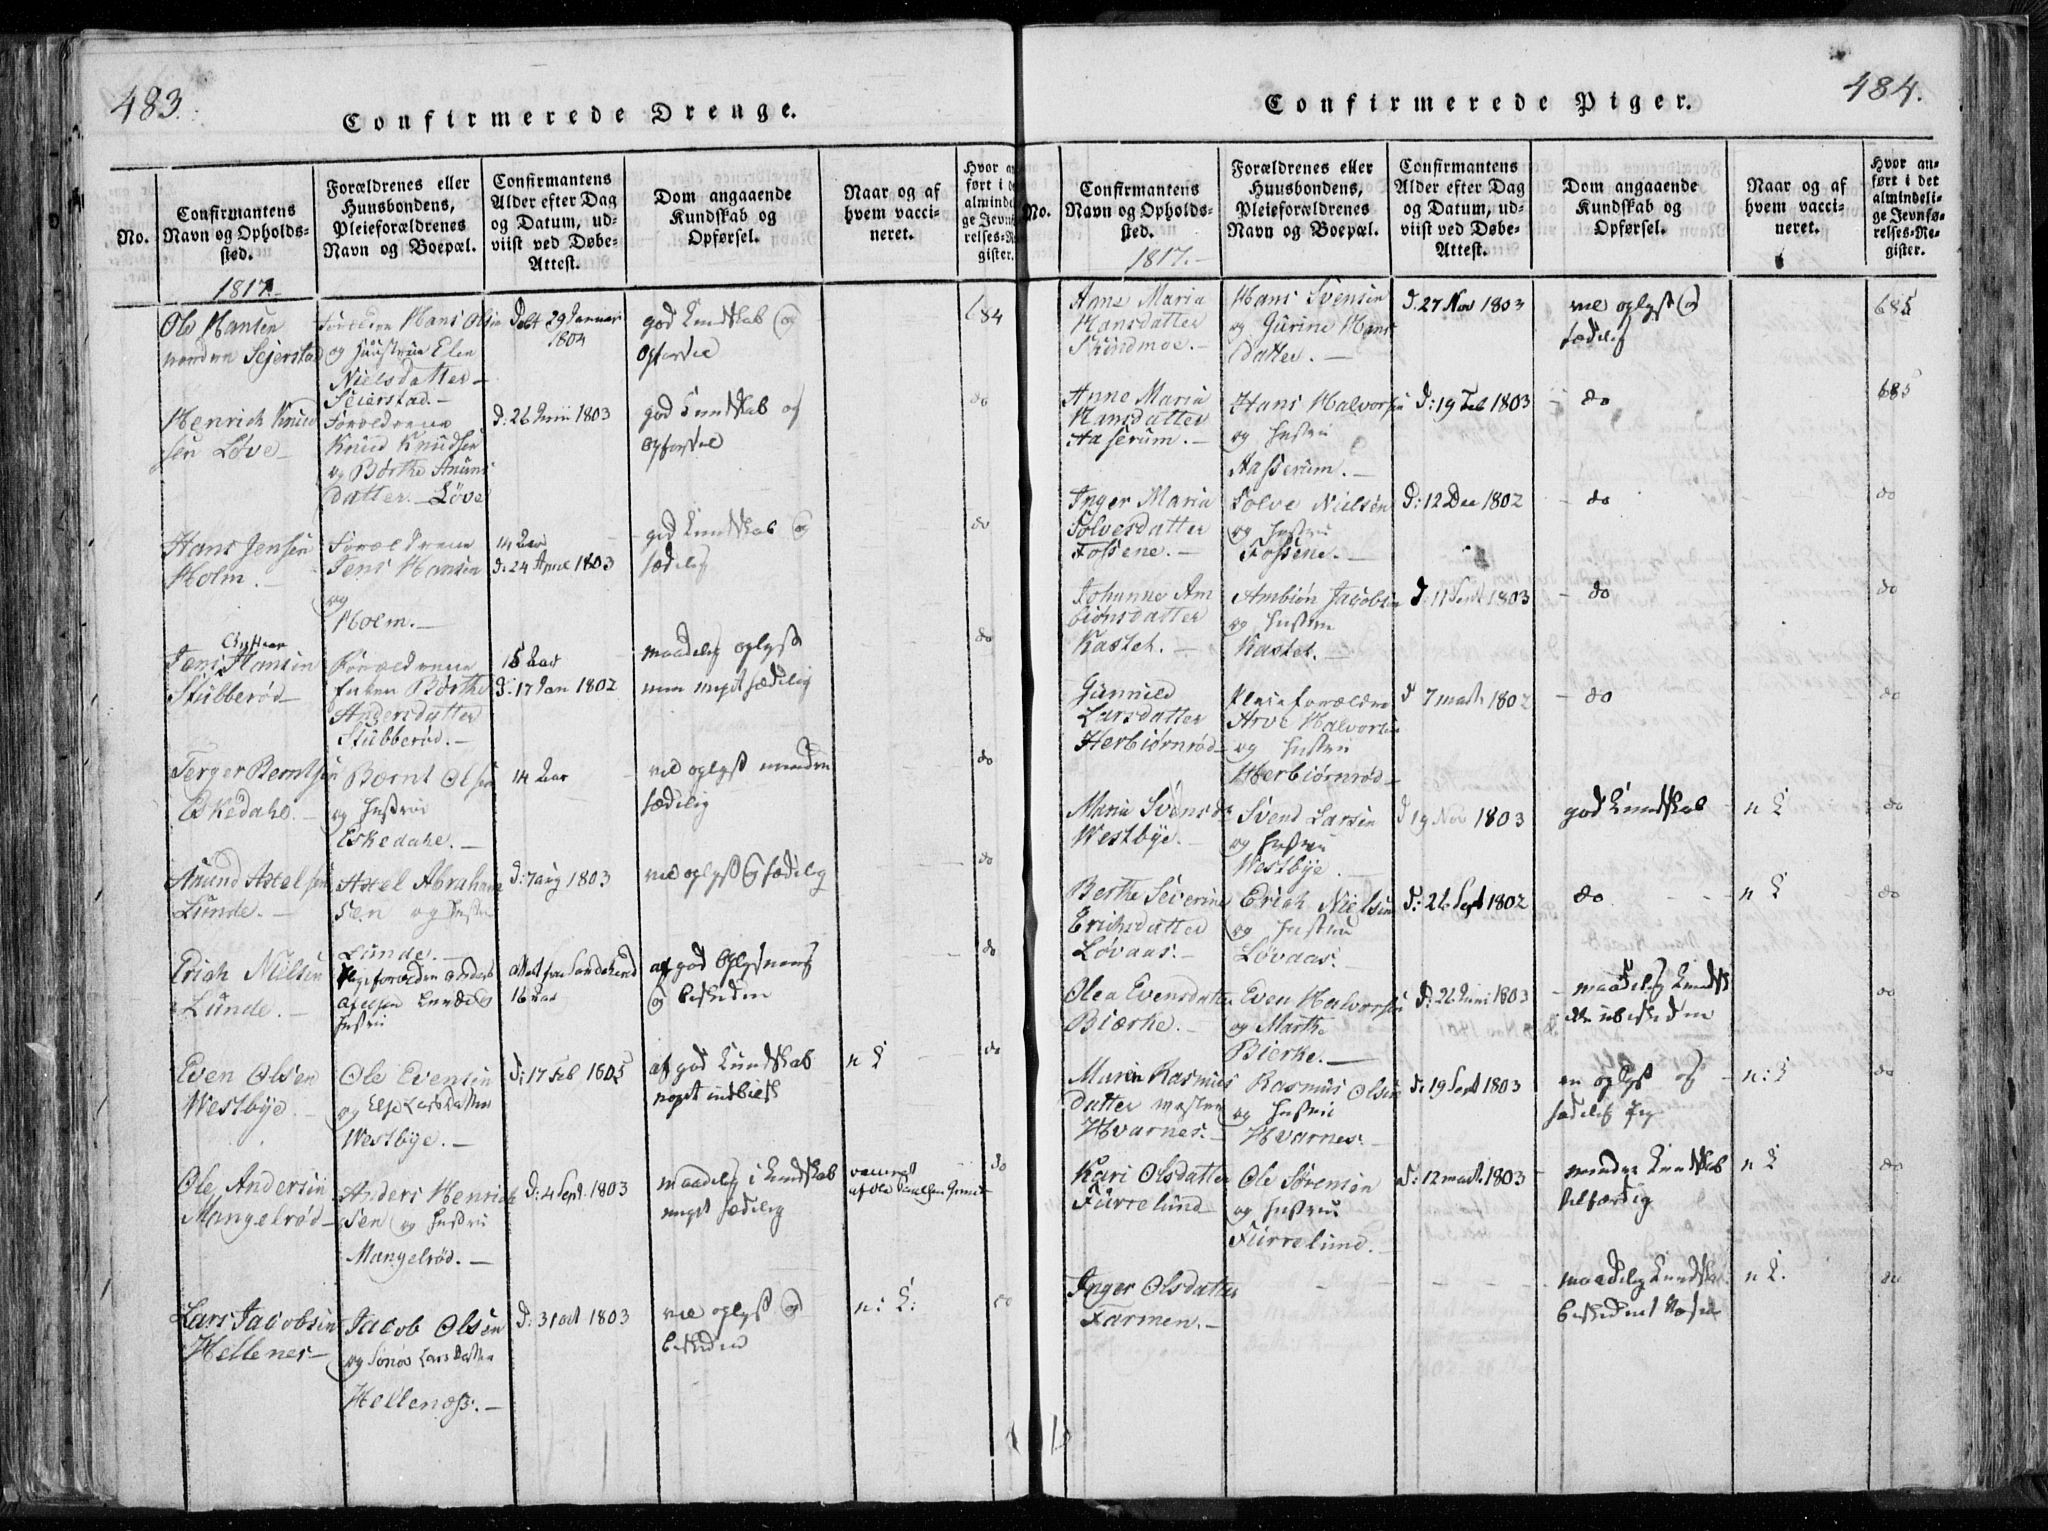 483.
Confirmerede Drenge.
No.
Confirmantens
Navn og Opholds-
sted.
Forældrenes eller
Huusbondens,
Pleieforældrenes
Navn og Boepæl.
Confirmantens
Alder efter Dag
og Datum, ud-
viist ved Døbe-
Attest.
Dom angaaende
Kundskab og
Opførsel.
Naar og af
hvem vacci-
neret.
Hvor an
ført i de
almindel
ge Jevnfø
relses-Re
gister.
1817.
Ole Hansen
nordre Sejerstad
Forældrene Hans Olsen
og Huustrue Elen
Nielsdatter
Seierstad.
Døbt 29 Januar
1804
god Kundskab og
Opførsel
684
Henrich Knud
sen Løve
Forældrene
Knud Knudsen
og Børthe Anuns
datter. Løve
d: 26 Junii 1803
god Kundskab og
Opførsel
do
Hans Jensen
Holm.
Forældrene
Jens Hansen
og
Holm.
14 Aar
d. 24 April 1803
god Kundskab og
sædelig
do
Jens Hansen
Stubberød
Forældrene
Børthe
Andersdatter
Stubberød.
15 Aar
d. 17 Jan 1802
maadelig oplyst
men meget sædelig
do
Terger Berntsen
Eskedahl.
Bernt Olsen
og Hustrue
Eskedahl.
14 Aar
vel oplyst mindre
sædelig
do
Anund Axelsen
Lunde.
Axel Abraham
sen og Hustru
Lunde.
d: 7 aug 1803
vel oplyst og sædelig
do
Erich Nielsen
Lunde.
Anders
Lunde og
Hustru
16 Aar
af god Oplysning
og beskeden
do
Even Olsen
Westbye
Ole Evensen
og Else Larsdatter
Westbye.
d: 17 Feb 1805
af god Kundskab
noget indbilsk
n L
do
Ole Andersen
Mangelrød
Anders Henrich
sen og Hustru
Mangelrød.
d: 4 Sept. 1803
maadelig i Kundskab
meget sædelig
do
Lars Jacobsen
Hellenes
Jacob Olsen
og Larsdatter
Hellenæss.
d: 31 oct 1803
vel oplyst og
beskeden
n: L:
do
484.
Confirmerede Piger.
No.
Confirmantens
Navn og Opholds-
sted.
Forældrenes eller
Huusbondens,
Pleieforældrenes
Navn og Boepæl.
Confirmantens
Alder efter Dag
og Datum, ud-
viist ved Døbe-
Attest.
Dom angaaende
Kundskab og
Opførsel.
Naar og af
hvem vacci-
neret.
Hvor an-
ført i det
almindeli-
ge Jevnfø-
relses-Re-
gister.
1817.
Anne Maria
Hansdatter
Skindmoe.
Hans Svensen
og Gurine Hans
datter.
d. 27 Nov 1803
vel oplyst og
sædelig
685
Anne Maria
Hansdatter
Aaserum.
Hans Halvorsen
og Hustru
Aasserum.
d: 19 Feb 1803
do
685
Inger Maria
Tolvesdatter
Fossene.
Tolve Nielsen
og Hustru
Fossene.
d: 12 Dec 1802
do
do
Johanne Am
biønsdatter
Kastet.
Ambiøn Jacobsen
og Hustrue
Kastet.
d: 11 Sept 1803
do
do
Gunnild
Larsdatter
Herbiørnrød
Pleieforældre
Arve Halvorsen
og Hustru
Herbiørnrød
d 7 marts 1802
do
do
Maria Svensd
Westbye.
Svend Larsen
og Hustru
Westbye.
d 19 Nov 1803
god Kundskab
n L
do
Berthe Severine
Erichsdatter
Løvaas.
Erich Nielsen
og Hustru
Løvaas.
d: 26 Sept 1802
do
n L
do
Olea Evensdatter
Biærke.
Even Halvorsen
og Marthe
Bierke.
d: 26 Juni 1803
maadelig Kundsk
ubeskeden
do
Maren Rasmus
datter westre
Hvarnes.
Rasmus Olsen
og Hustru
Hvarnes.
d. 19 Sept 1803
en oplyst og
sædelig Pige
n: L
do
Kari Olsdatter
Furrelund
Ole Sørensen
og Hustru
Furrelund.
d: 12 marts 1803
mindre Kundskab
n L
do
Inger Olsdatter
Farmen.
maadelig Kundskab
beskedent Væsen
n L.
do